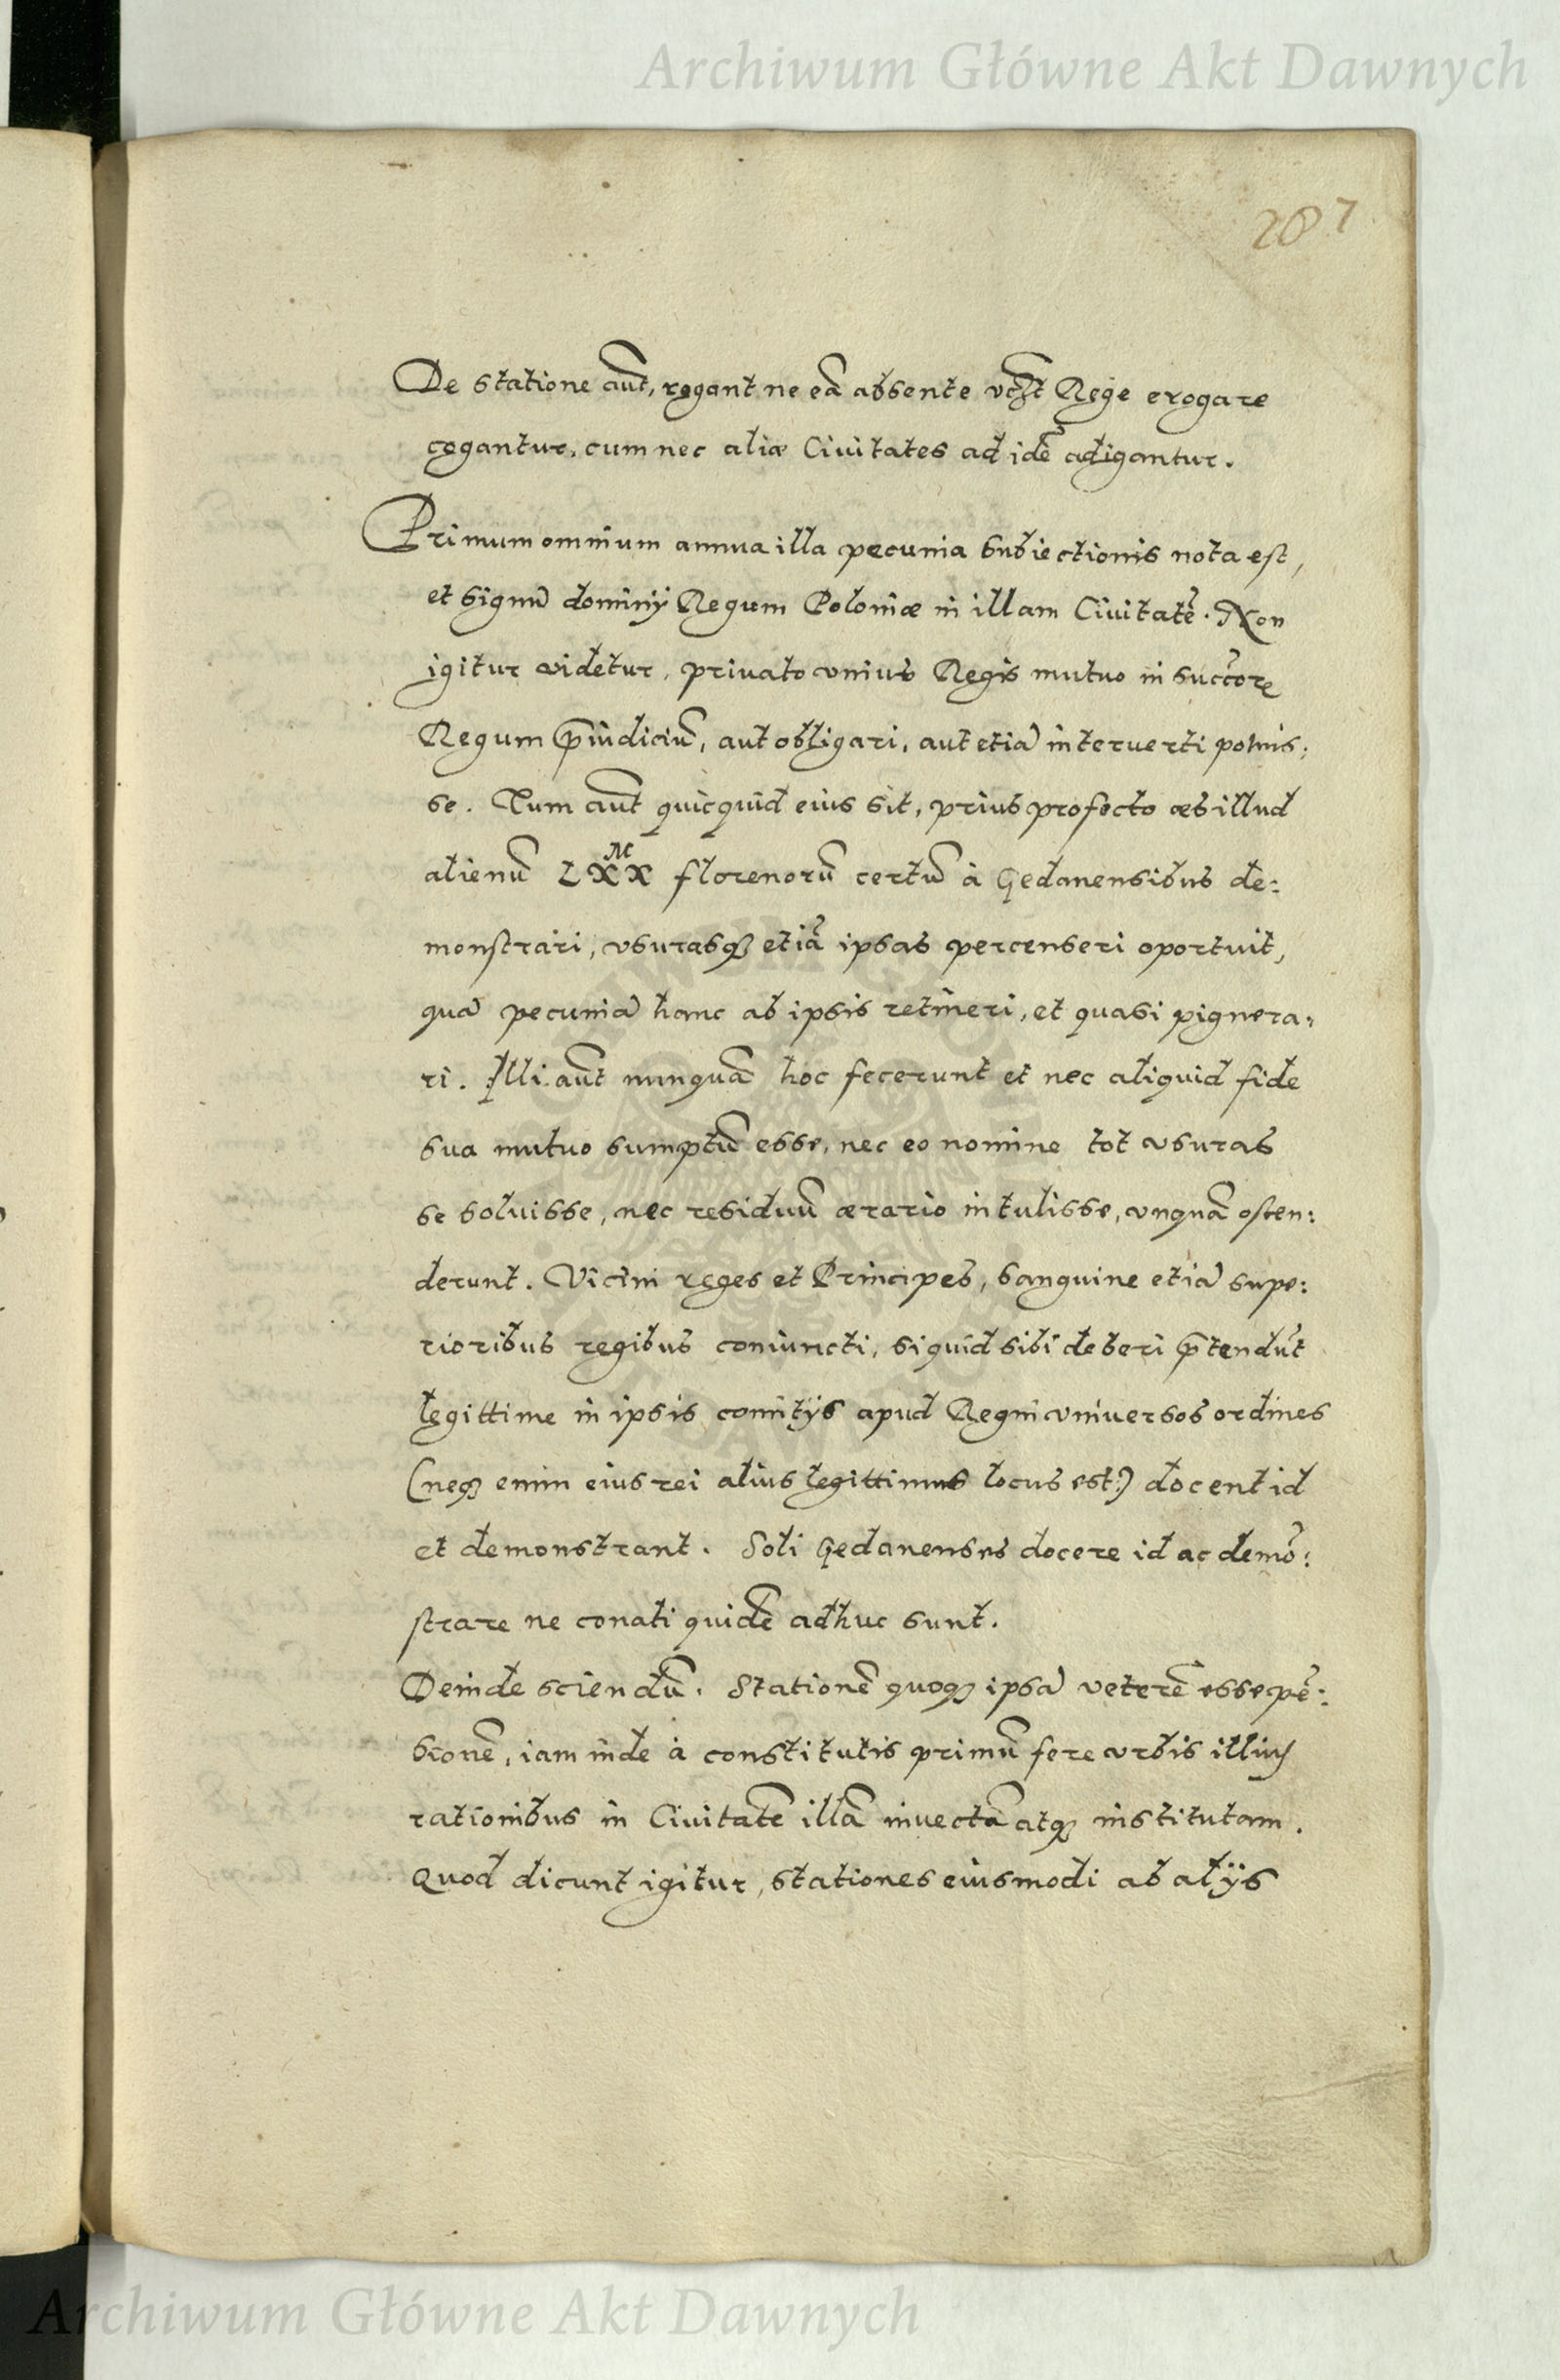 Archiwum Główne Akt Dawnych
287
De statione aūt, rogant ne eā absente Regē erogare
cogantur, cum nec aliæ Ciuitates ad idē adigantur.
Primum omnium annua illa pecunia subiectionis nota est,
et signū dominij Regum Poloniæ in illam Ciuitatē. Non
igitur videtur, priuato vnius Regis mutuo in
Regum p̄iudiciū, aut obligari, aut etiā interuerti potuis:
se. Tum aūt quicquid eius sit, prius profecto æs illud
alienū LXX M florenorū certū à Gedanensibus de:
monstrari, vsurasq; etiā ipsas percenseri oportuit,
quā pecuniā hanc ab ipsis retineri, et quasi pignera:
ri. Illi aūt nunquā hoc fecerunt et nec aliquid fide
sua mutuo sumptū esse, nec eo nomine tot vsuras
se soluisse, nec residuū ærario intulisse, vnquā osten:
derunt. Vicini reges et Principes, sanguine etiā supe:
rioribus regibus coniuncti, si quid sibi deberi p̄tendūt
legittime in ipsis comitijs apud Regni vniuersos ordines
(neq; enim eius rei alius legittimus locus est:) docent id
et demonstrant. Soli Gedanenses docere id ac demō:
strare ne conati quidē adhuc sunt.
Deinde sciendū. Stationē quoq; ipsā veterē esse pē:
sionē, iam inde à constitutis primū fere vrbis illius
rationibus in Ciuitatē illā inuectā atq; institutam.
Quod dicunt igitur, stationes eiusmodi ab alijs
Archiwum Główne Akt Dawnych